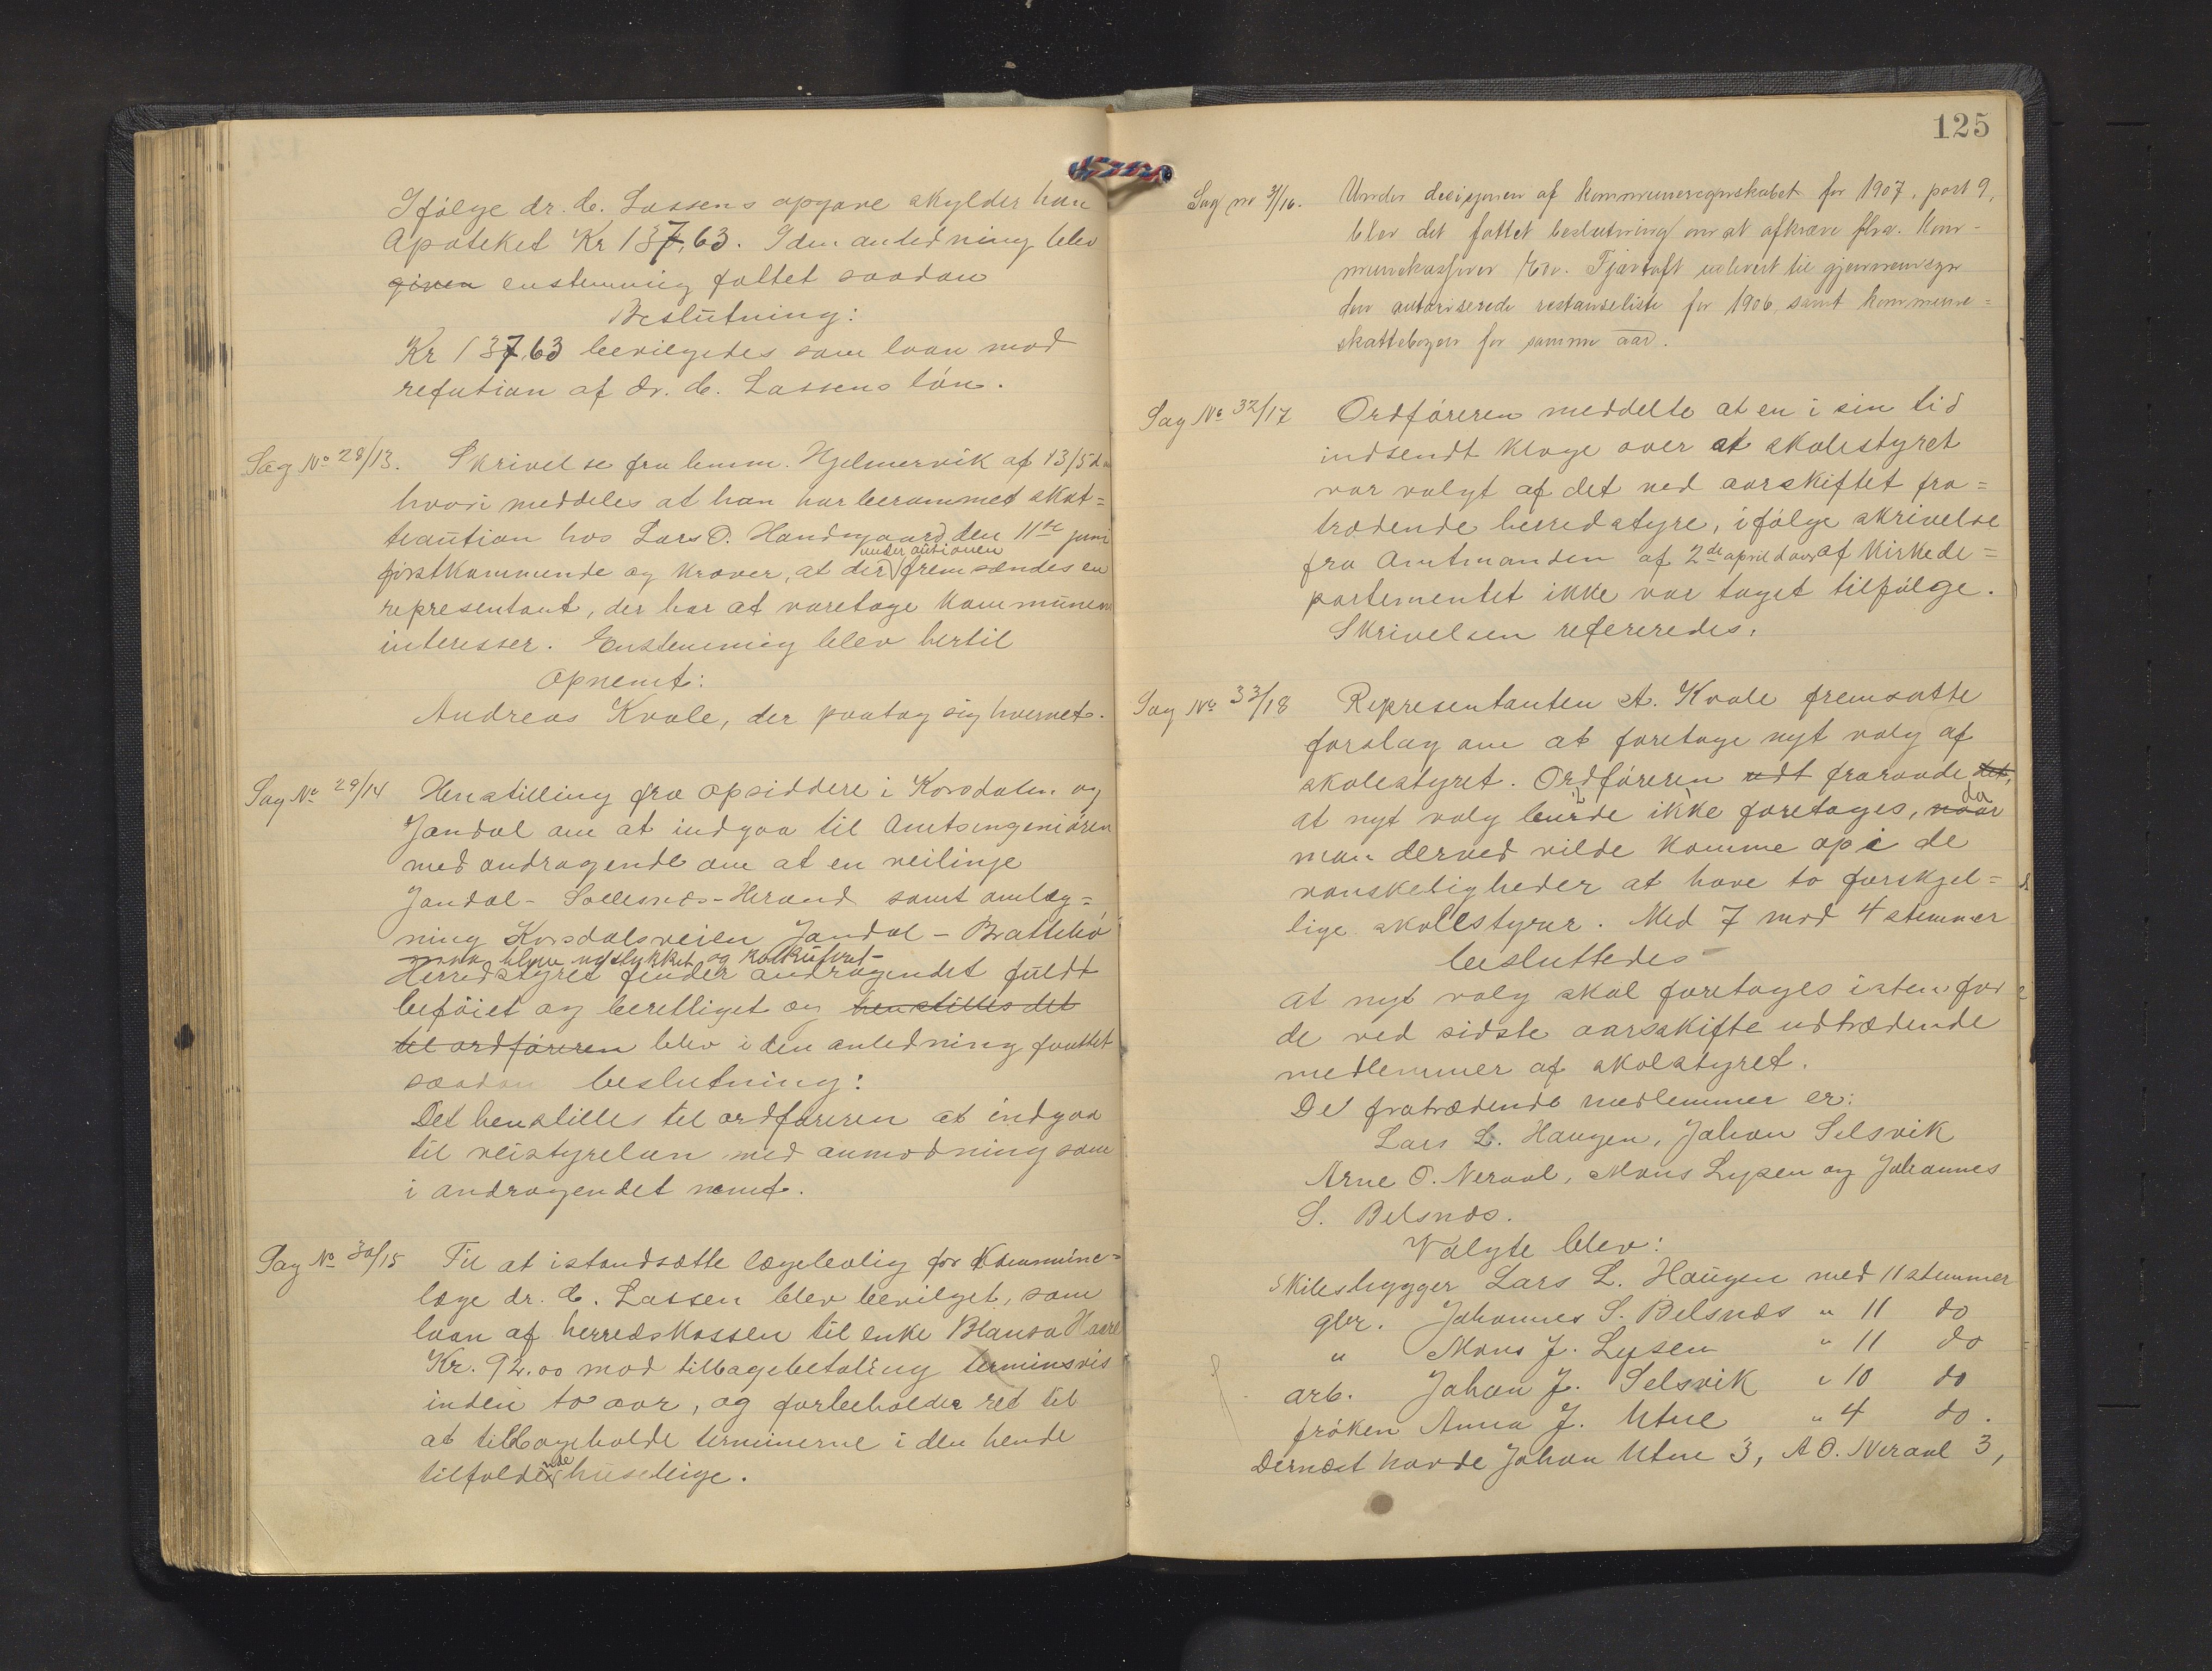 Ifølge dr. C. Lassens opgave skylder han
Apoteket Kr 137,63. I den anledning blev
given enstemmig fattet saadan
Beslutning:
Kr 137,63 bevilgedes som laan mod
refution af dr. C. Lassens løn.
Sag No 28/13. Skrivelse fra lensm. Hjelmervik af 13/5 d.a
hvori meddeles at han har berammet skat=
teaution hos Lars O. Handegaard den 11te juni
under autionen
førstkommende og kræver, at der fremsændes en
representant, der har at varetage kommunens
interesser. Enstemmig blev hertil
Opnemt:
Andreas Kvale, der paatog sig hvervet.
Sag No 29/14 Henstilling fra opsiddere i Korsdalen og
Jondal om at indgaa til Amtsingeniøren
med andragende om at en veilinje
Jondal - Solesnes - Herand samt omlæg=
ning Korsdalsveien Jondal - Brattebø
maa blive udstukket og kalkulert-
Herredstyret finder andragendet fuldt
beføiet og berettiget og henstilles det
til ordføreren blev i den anledning fattet
saadan beslutning:
Det henstilles til ordføreren at indgaa
til veistyrelsen med anmodning som
i andragendet nemt.
Sag No 30/15 Til at istandsætte lægebolig for Kommune=
læge dr. C. Lassen blev bevilget, som
laan af herredskassen til enke Blansa Haare
Kr. 92.00 mod tilbagebetaling terminsvis
inden to aar, og forbeholder ret til
at tilbageholde terminerne i den hende
nde
tilfalde husleige.
125
Sag no 31/16. Under decisionen af kommuneregnskabet for 1907, post 9,
blev det fattet beslutning om at afkræve fhv. kom-
munekasserer Edv. Tjærtoft udlevert til gjennemsyn
den autoriserede restanseliste for 1906 samt kommune=
skattebogen for samme aar.
Sag No 32/17 Ordføreren meddelte at en i sin tid
indsendt klage over at skolestyret
var valgt af det ved aarskiftet fra=
trædende herredstyre, ifølge skrivelse
fra Amtmanden af 2de april d aar af Kirkede=
partementet ikke var taget tilfølge.
Skrivelsen refereredes.
Sag No 33/18 Representanten A. Kvale fremsatte
forslag om at foretage nyt valg af
skolestyret. Ordføreren udt fraraade det,
at nyt valg burde ikke foretages, naar
da
man derved vilde komme op i de
vanskeligheder at have to forskjel=
lige skolestyrer. Med 7 mod 4 stemmer
besluttedes
at nyt valg skal foretages istenfor
de ved sidste aarsskifte udtrædende
medlemmer af skolstyret.
De fratrædende medlemmer er:
Lars L. Haugen, Johan Selsvik
Arne O. Neraal, Mons Lysen og Johannes
S. Belsnæs.
Valgte blev:
Skilesbygger Lars L. Haugen med 11 stemmer
gbr. Johannes S. Belsnæs " 11 do
" Mons J. Lysen " 11 do
arb. Johan J. Selsvik " 10 do
frøken Anna J. Utne " 4 do.
Dernæst havde Johan Utne 3, A O. Neraal 3,